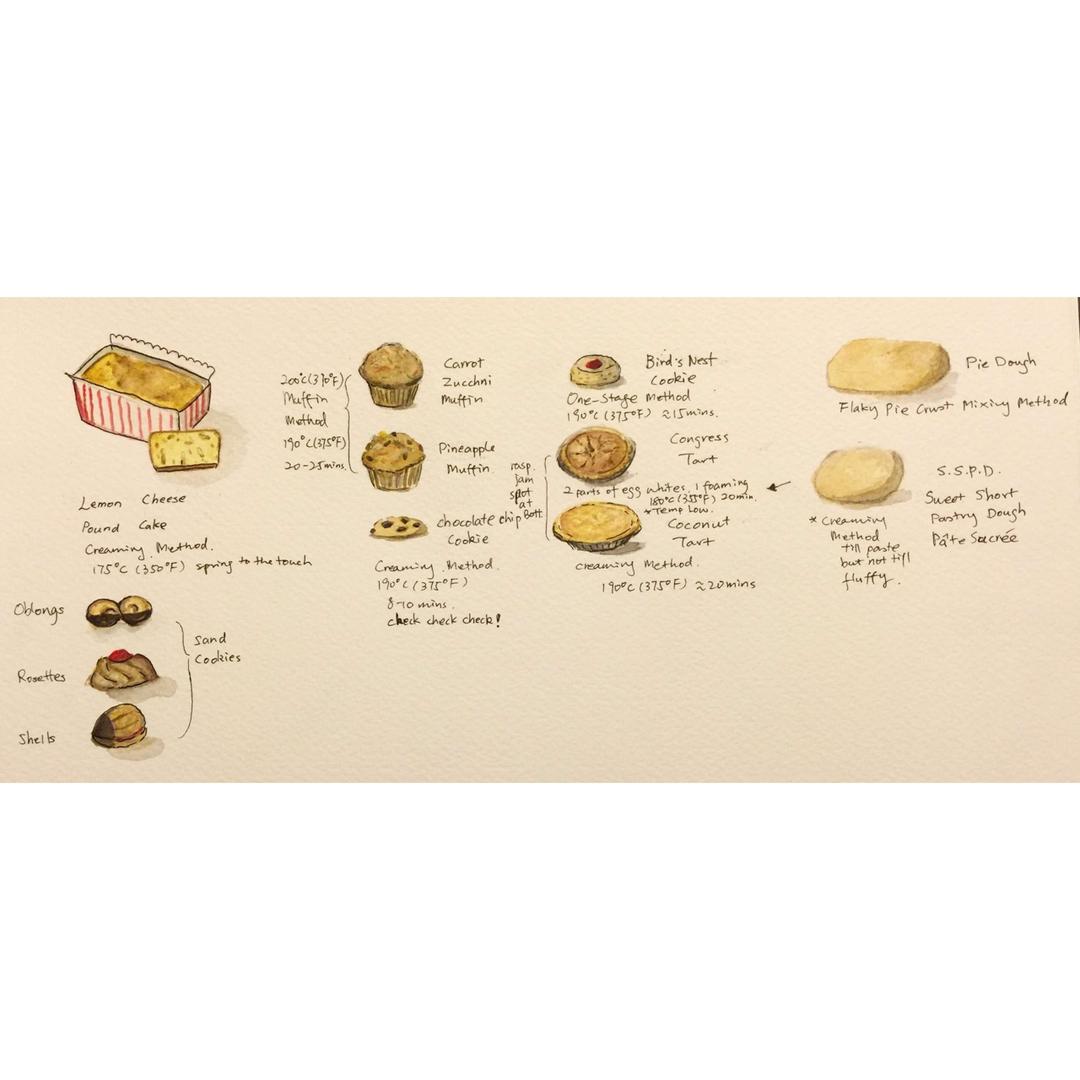 Lemon Cheese
Pound Cake
Creaming Method.
175°C (350°F) spring to the touch
Oblongs
Rosettes
Shells
Sand
Cookies
200°C(370°F)
Muffin
Method
190°C(375°F)
20-25mins.
Carrot
Zucchni
Muffin
Pineapple
Muffin
chocolate chip
Cookie
Creaming Method.
190°C (375°F)
8-10 mins.
check check check!
Bird's Nest
Cookie
One-Stage Method
190°C (375°F) ≈15mins.
Congress
Tart
rasp.
jam
spot
at
Bott.
2 parts of egg whites, 1 foaming
180°C (355°F) 20min.
*Temp Low.
Coconut
Tart
creaming Method.
190°C (375°F) ≈20mins
Pie Dough
Flaky Pie Crust Mixing Method
S.S.P.D.
Sweet Short
Pastry Dough
Pâte Sucrée
*Creaming
Method
till paste
but not till
fluffy.